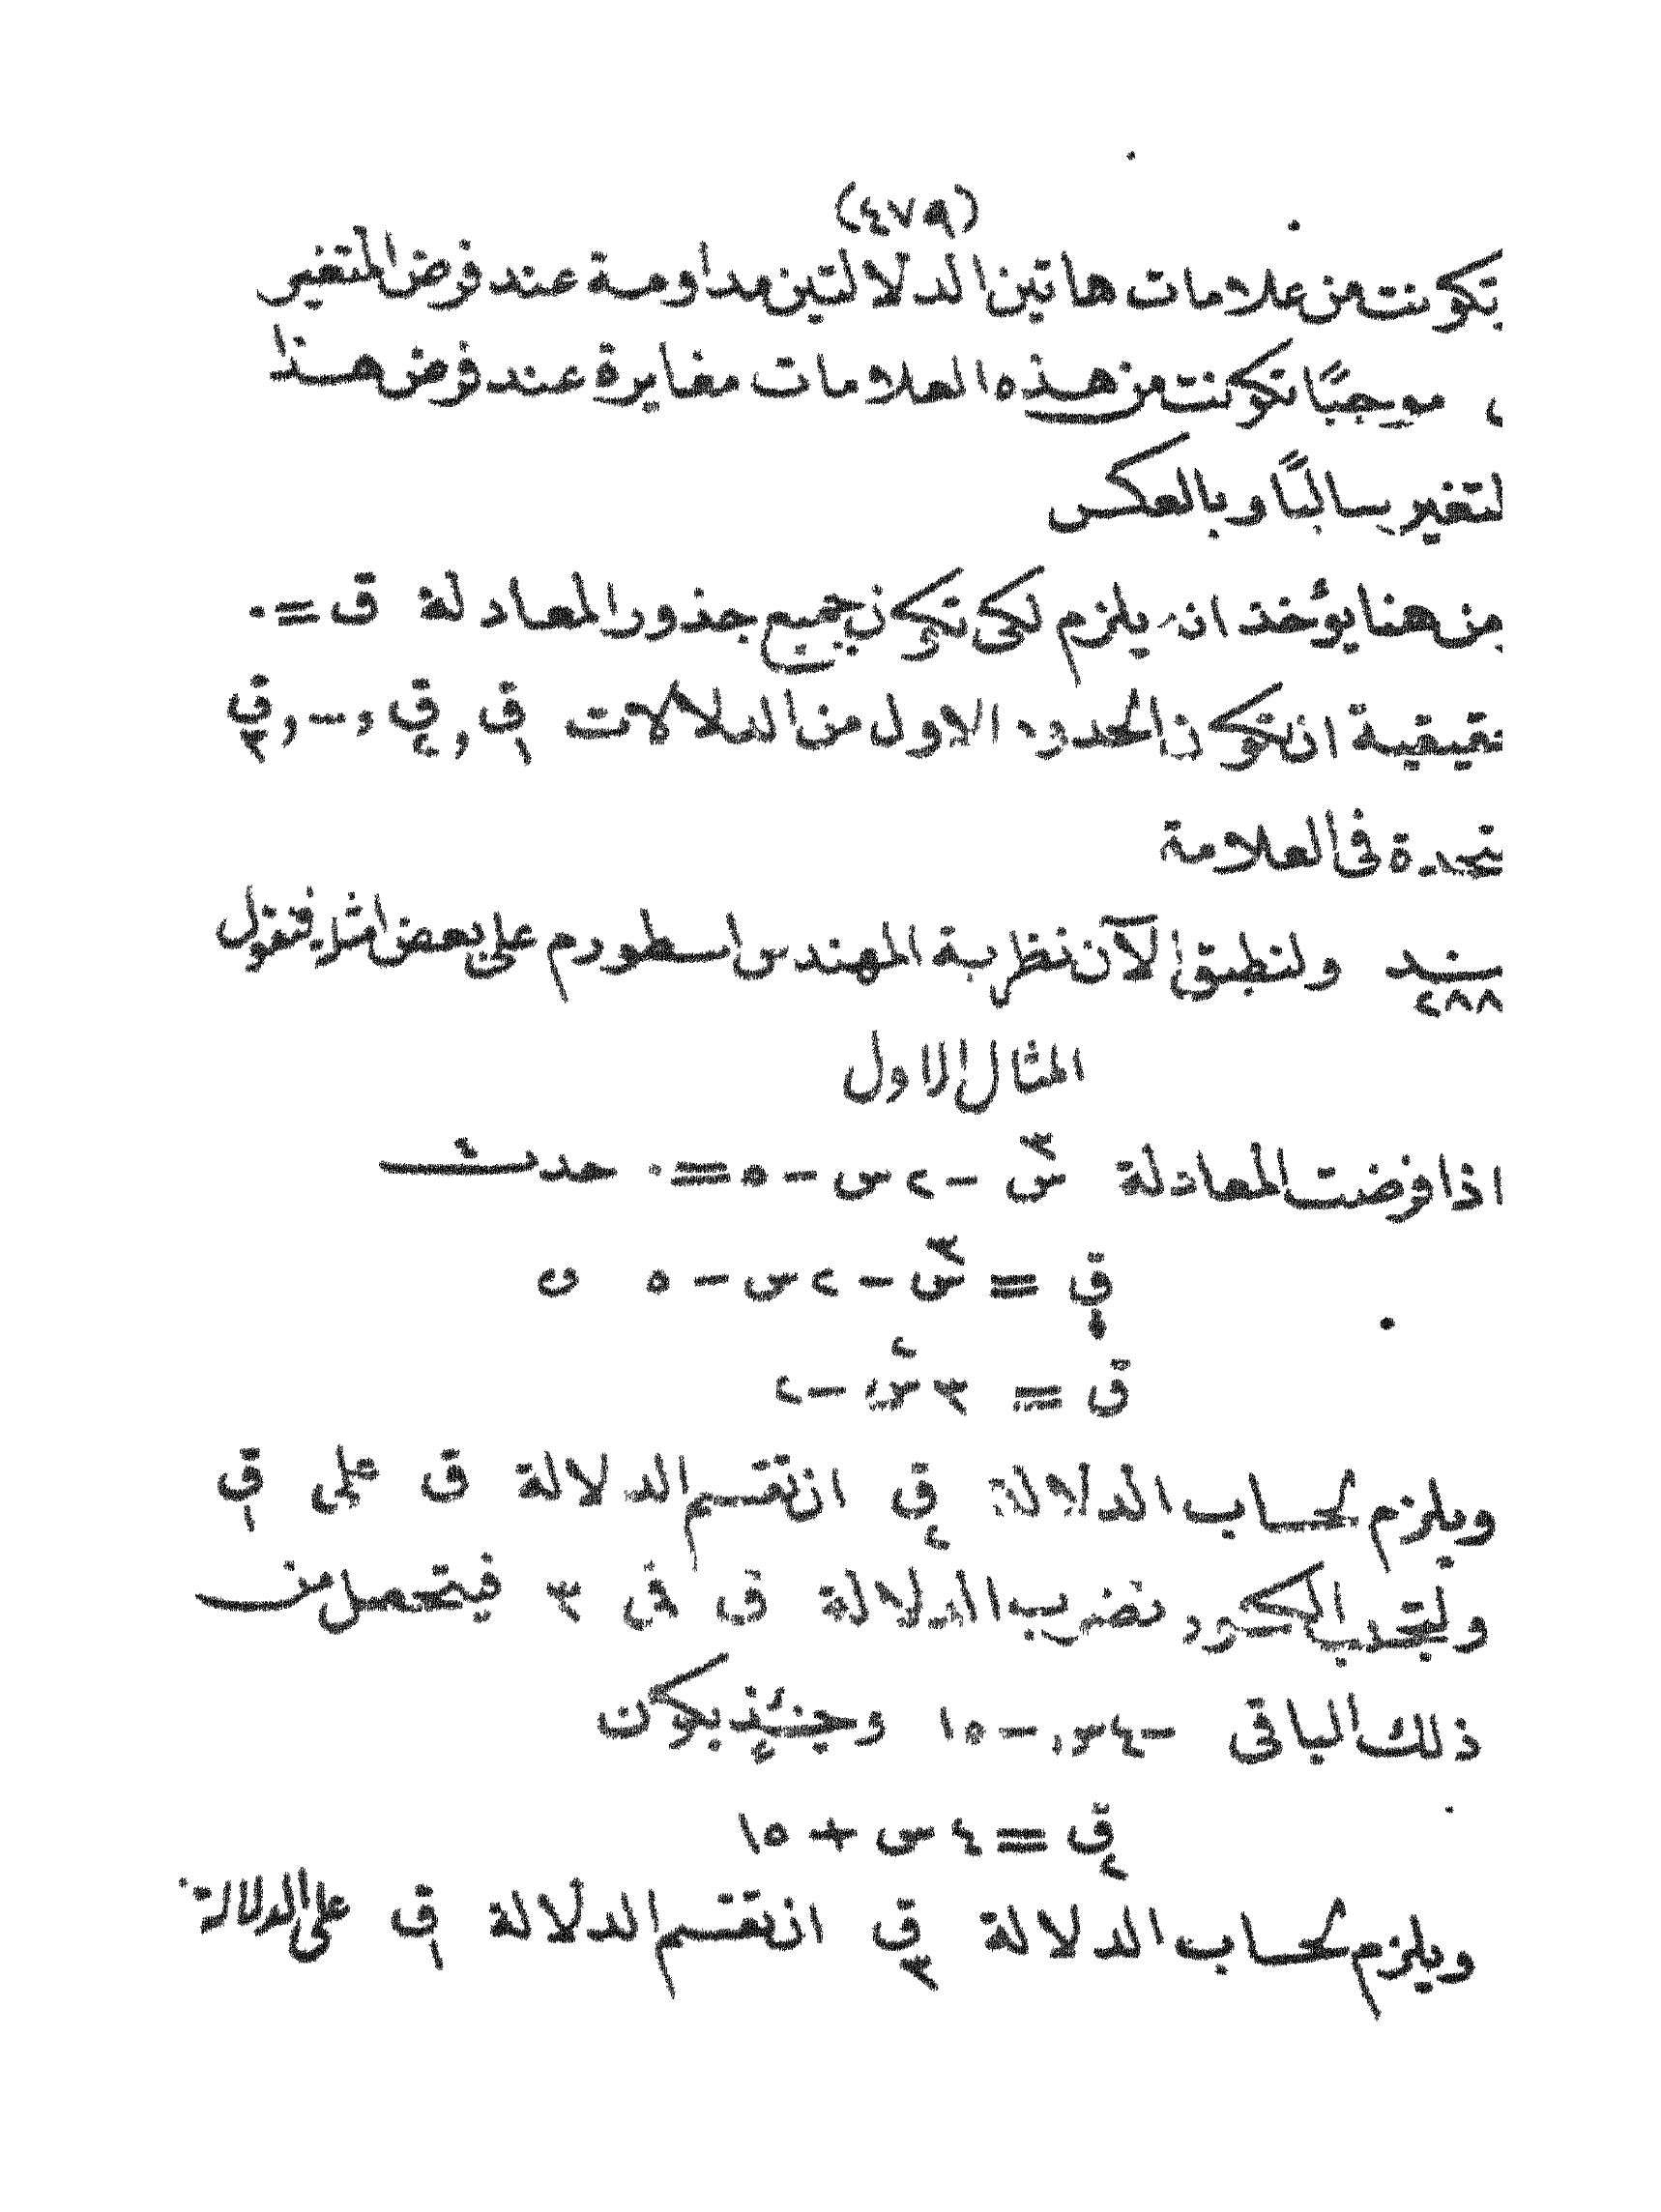 (٤٧٩)
تكونت من علامات هاتين الدلالتين مداومة عند فرض المتغير
موجبًا تكونت من هذه العلامات مغايرة عند فرض هذا
لتغير سالبًا وبالعكس
من هنا يؤخذ انه يلزم لكى تكون جميع جذور المعادلة ق = ٠
حقيقية ان تكون الحدود الاول من الدلالات ق١ , ق٢ , ... , ق٣
تحدة فى العلامة
سند ولنطبق الآن نظرية المهندس اسطورم على بعض امثلة فنقول
٢٨٨
المثال الاول
اذا فرضت المعادلة س٣ - ٢ س - ٥ = ٠ حدث
ق = س٣ - ٢ س - ٥ ن
ق١ = ٣ س٢ - ٢
ويلزم لحساب الدلالة ق٢ ان تقسم الدلالة ق على ق١
ولتجنب الكسور نضرب الدلالة ق فى ٣ فيتحصل من
ذلك الباقى - ٤ س - ١٥ وحينئذ يكون
ق٢ = ٤ س + ١٥
ويلزم لحساب الدلالة ق٣ ان تقسم الدلالة ق١ على الدلالة